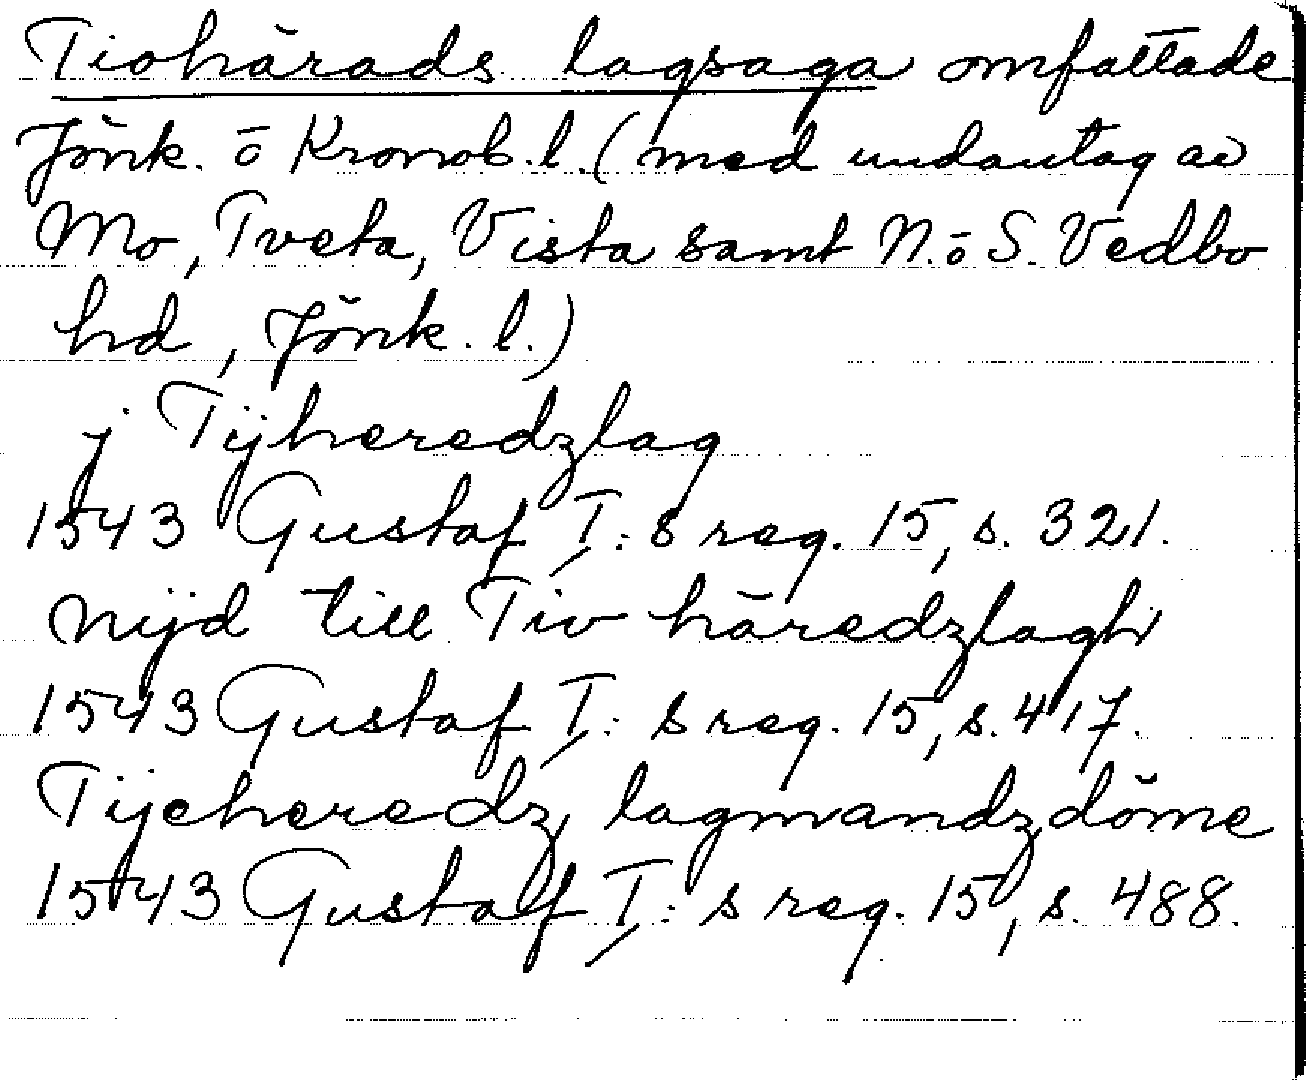 Tiohärads lagsaga omfattade
Jönk. ö Kronob. l. (med undantag av
Mo, Tveta, Vista samt N. ö S. Vedbo
hd, Jönk. l.)
j Tijheredzlag
1543 Gustaf I: s reg. 15, s. 321.
nijd till Tiv häredzlagh
1543 Gustaf I: s reg. 15, s. 417.
Tijeheredz lagmandzdöme
1543 Gustaf I: s reg. 15, s. 488.